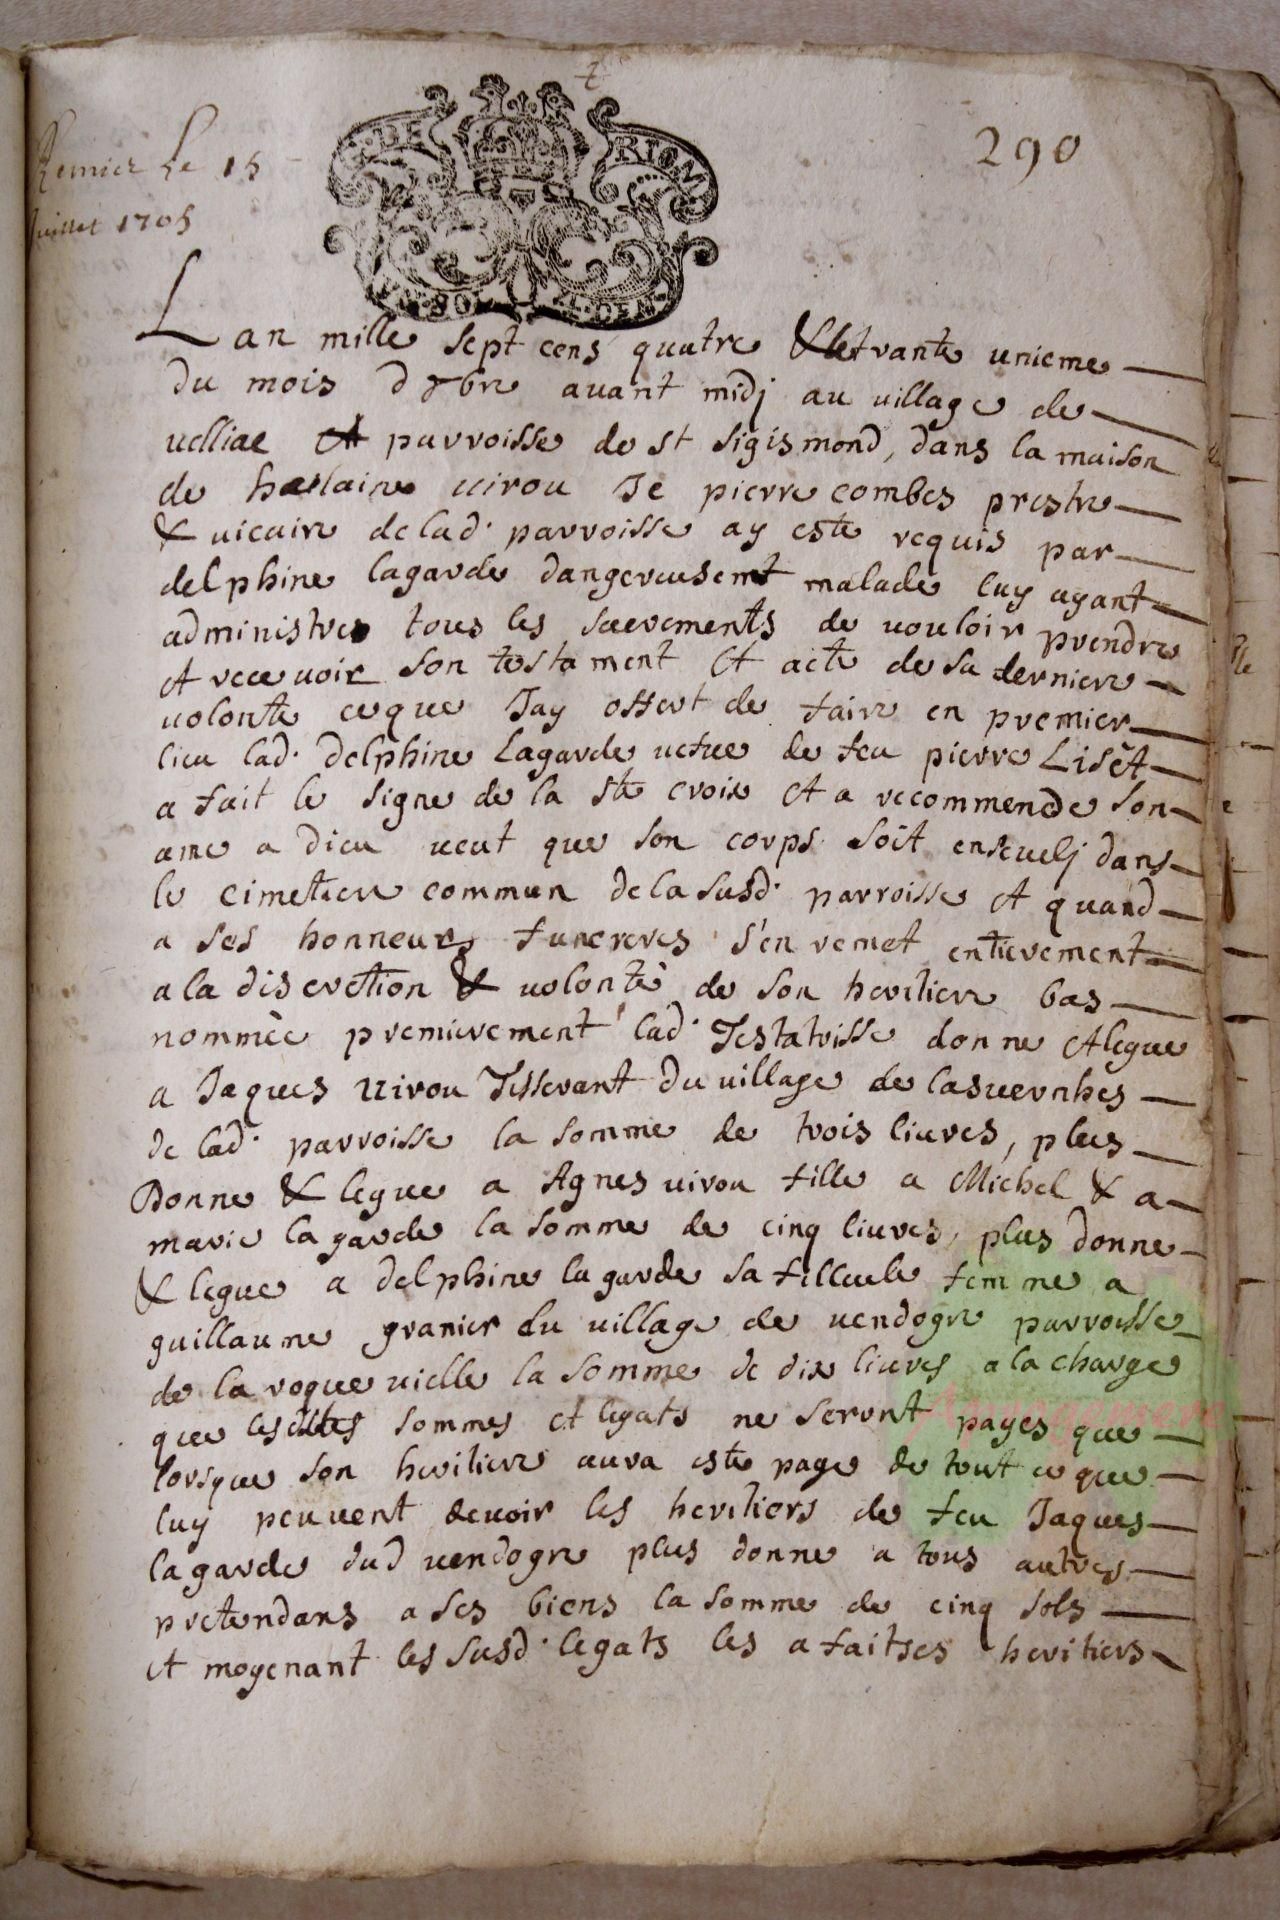 290
le 15
Juillet 1705
G. DE RIOM
Lan mille sept cens quatre & le trante unieme
du mois d 8bre auant midj au uillage de
uelliac et parroisse de st sigismond, dans la maison
de uirou Je pierre combes prestre
& uicaire de lad. parroisse ay este requis par
delphine lagarde dangereusemt malade luy ayant
administres tous les sacrements de uouloir prendre
et receuoir son testament et acte de sa derniere
uolonte ceque Jay offert de faire en premier
lieu lad. delphine Lagarde uefue de feu pierre Liset
a fait le signe de la ste croix et a recommende son
ame a dieu ueut que son corps soit enseuelj dans
le cimetiere commun de la susd. parroisse et quand
a ses honneurs funereres s'en remet entierement
a la discretion & uolonté de son heritiere bas
nommée premierement lad. Testatrisse donne et legue
a Jaques uirou Tisserant du uillage de lasuernhes
de lad. parroisse la somme de trois liures, plus
Donne & legue a Agnes uirou fille a Michel & a
marie lagarde la somme de cinq liures, plus donne
& legue a delphine lagarde sa filleule femme a
guillaume granier du uillage de uendogre parroisse
de la roque uielle la somme de dix liures a la charge
que lesdites sommes et legats ne seront payes que
lorsque son heritiere aura este page de tout ce que
luy peuuent deuoir les heritiers de feu Jaques
lagarde dud uendogre plus donne a tous autres
pretendans a ses biens la somme de cinq sols
et moyenant les susd. legats les a faits ses heritiers